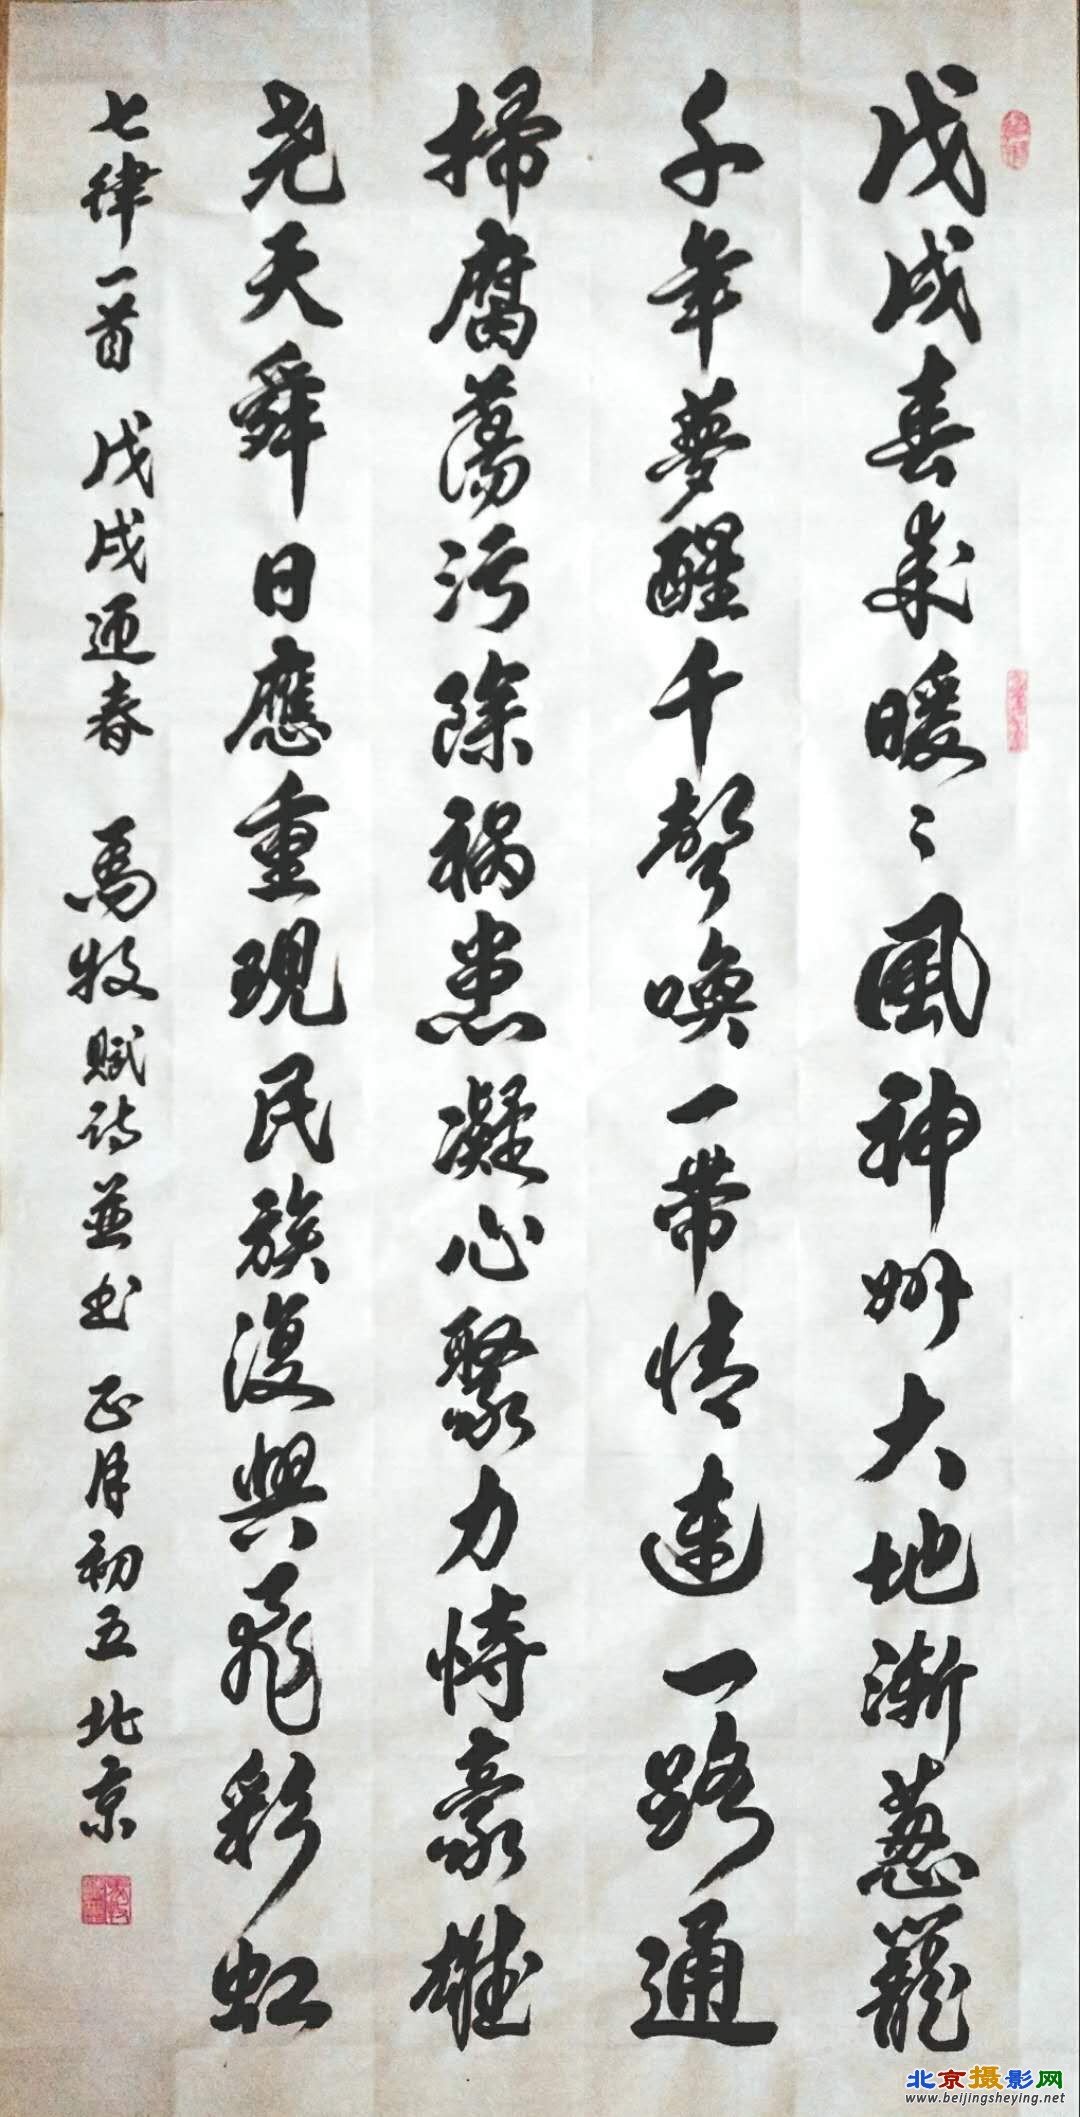 戊戌春来暖〻風神州大地漸葱蘢
千年夢醒千聲喚一带情連一路通
掃腐蕩污除禍患凝心聚力恃豪雄
尧天舜日應重現民族復興飛彩虹
七律一首 戊戌迎春 馬牧赋诗並书 正月初五 北京
北京摄影网
www.beijingsheying.net